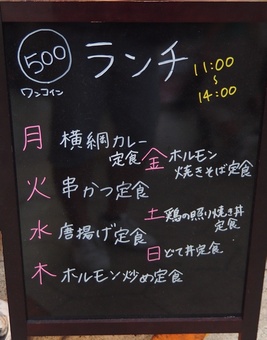 500
ワンコイン
ランチ
11:00
～
14:00
月 横綱カレー
定食
火 串かつ定食
水 唐揚げ定食
木 ホルモン炒め定食
金 ホルモン
焼きそば定食
土 鶏の照り焼き丼
定食
日 どて丼定食